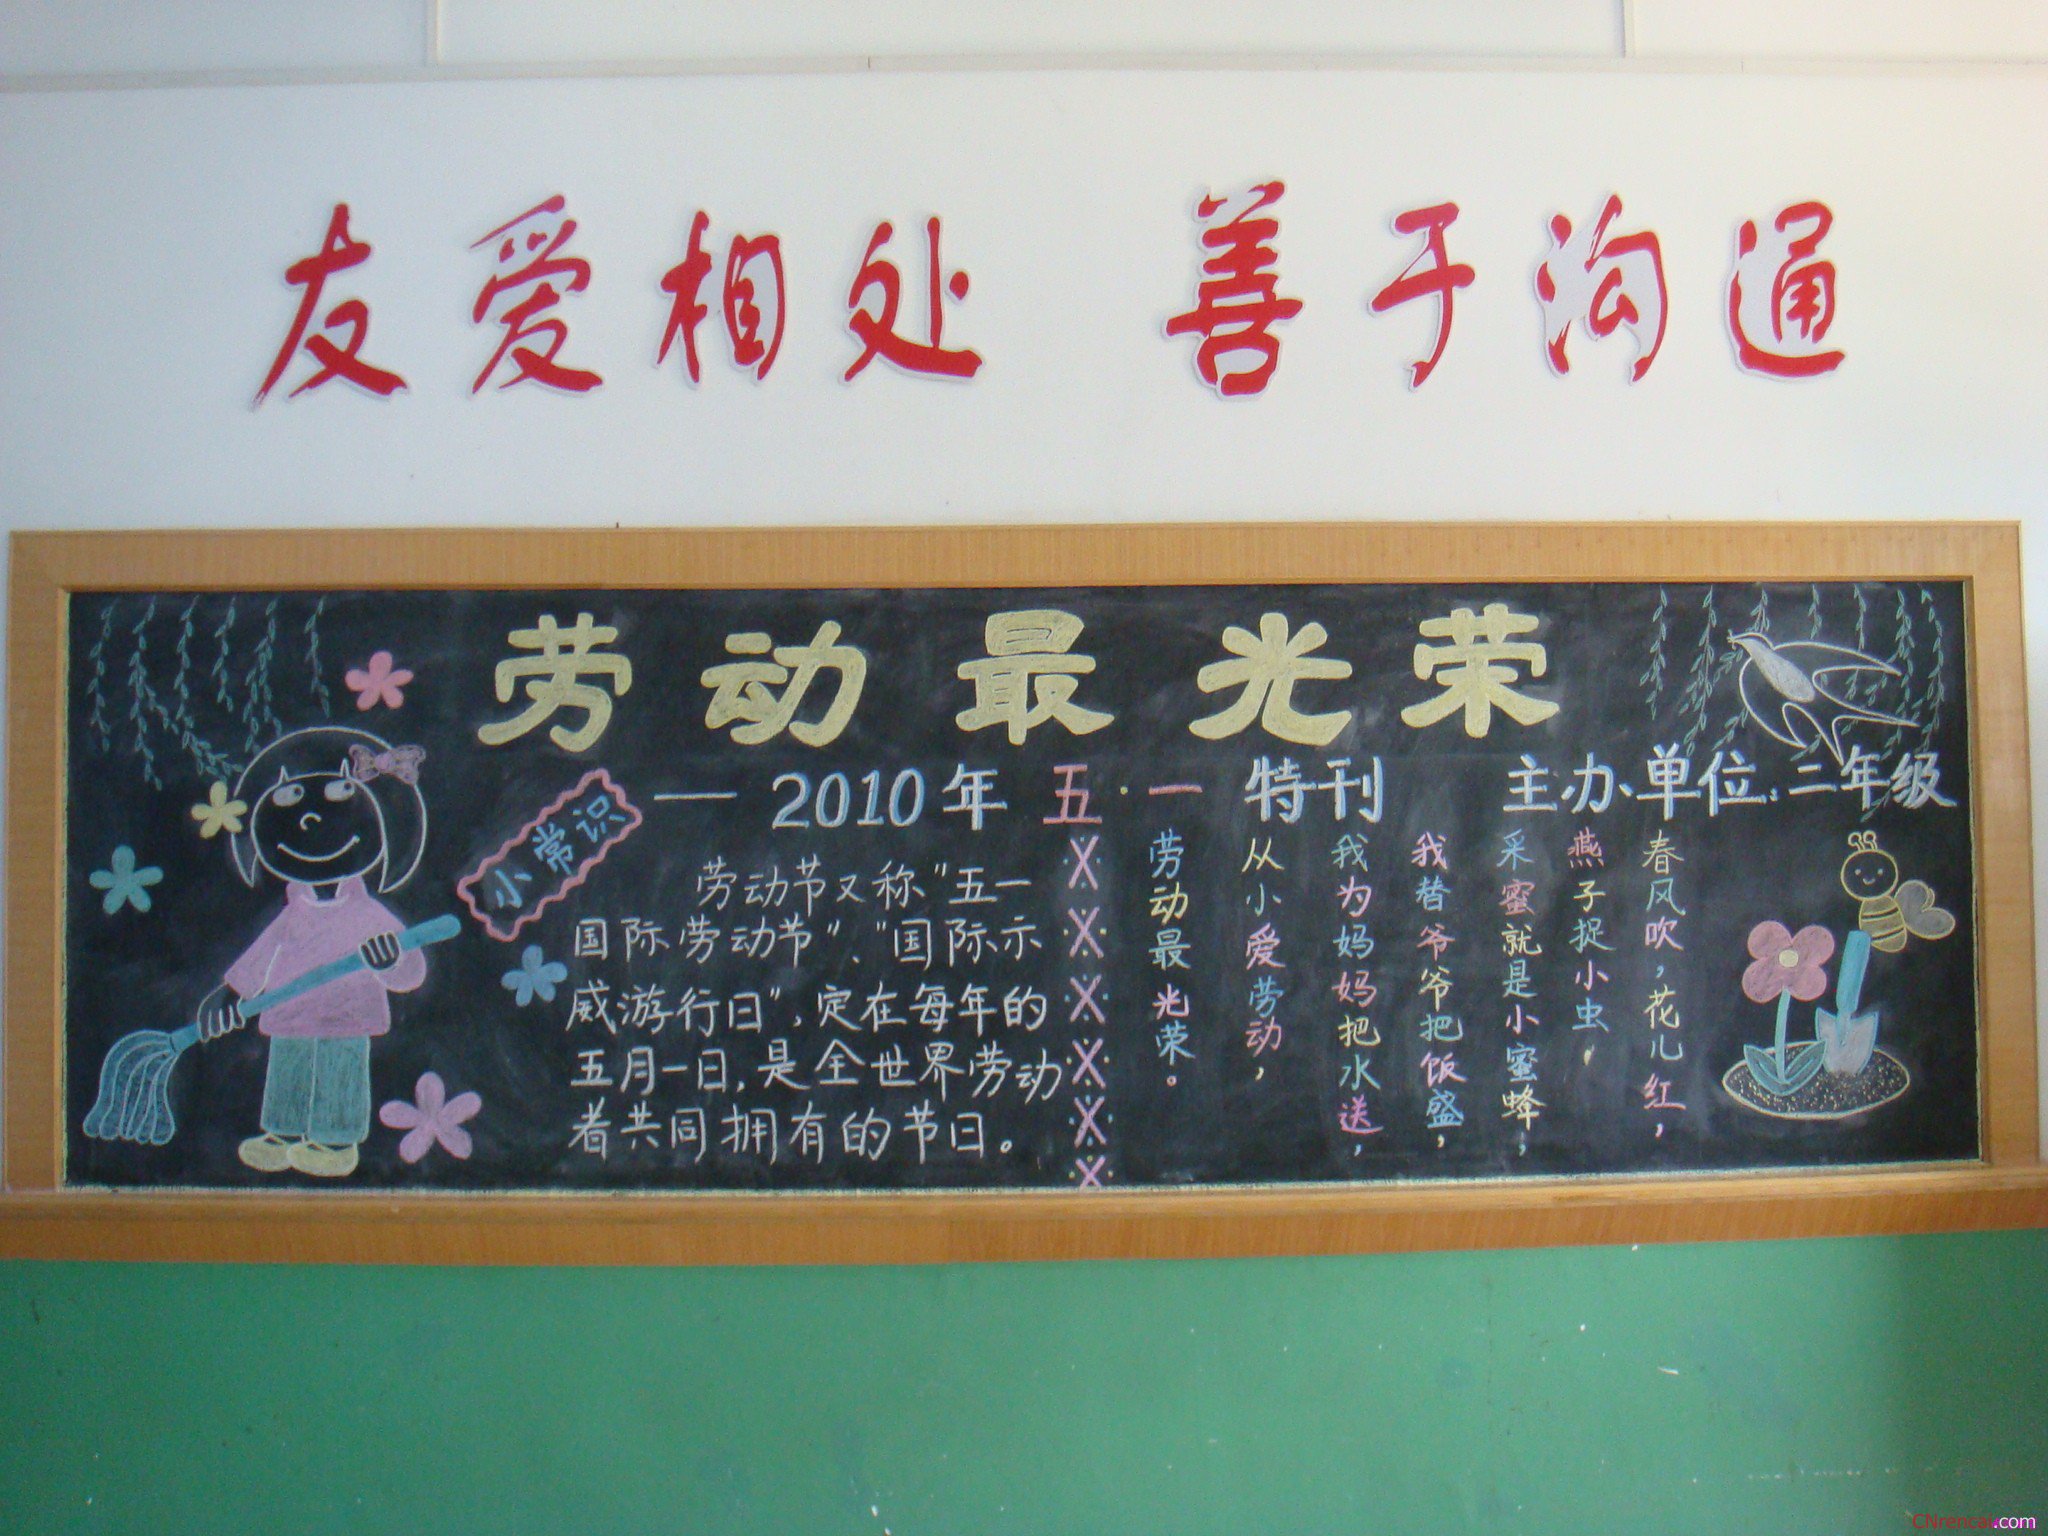 友爱相处 善于沟通
劳动最光荣
——2010年 五·一 特刊 主办单位:二年级
小常识
劳动节又称"五一
国际劳动节"、"国际示
威游行日",定在每年的
五月一日,是全世界劳动
者共同拥有的节日。
春风吹,花儿红,
燕子捉小虫,
采蜜就是小蜜蜂,
我替爷爷把饭盛,
我为妈妈把水送,
从小爱劳动,
劳动最光荣。
CNrencai.com